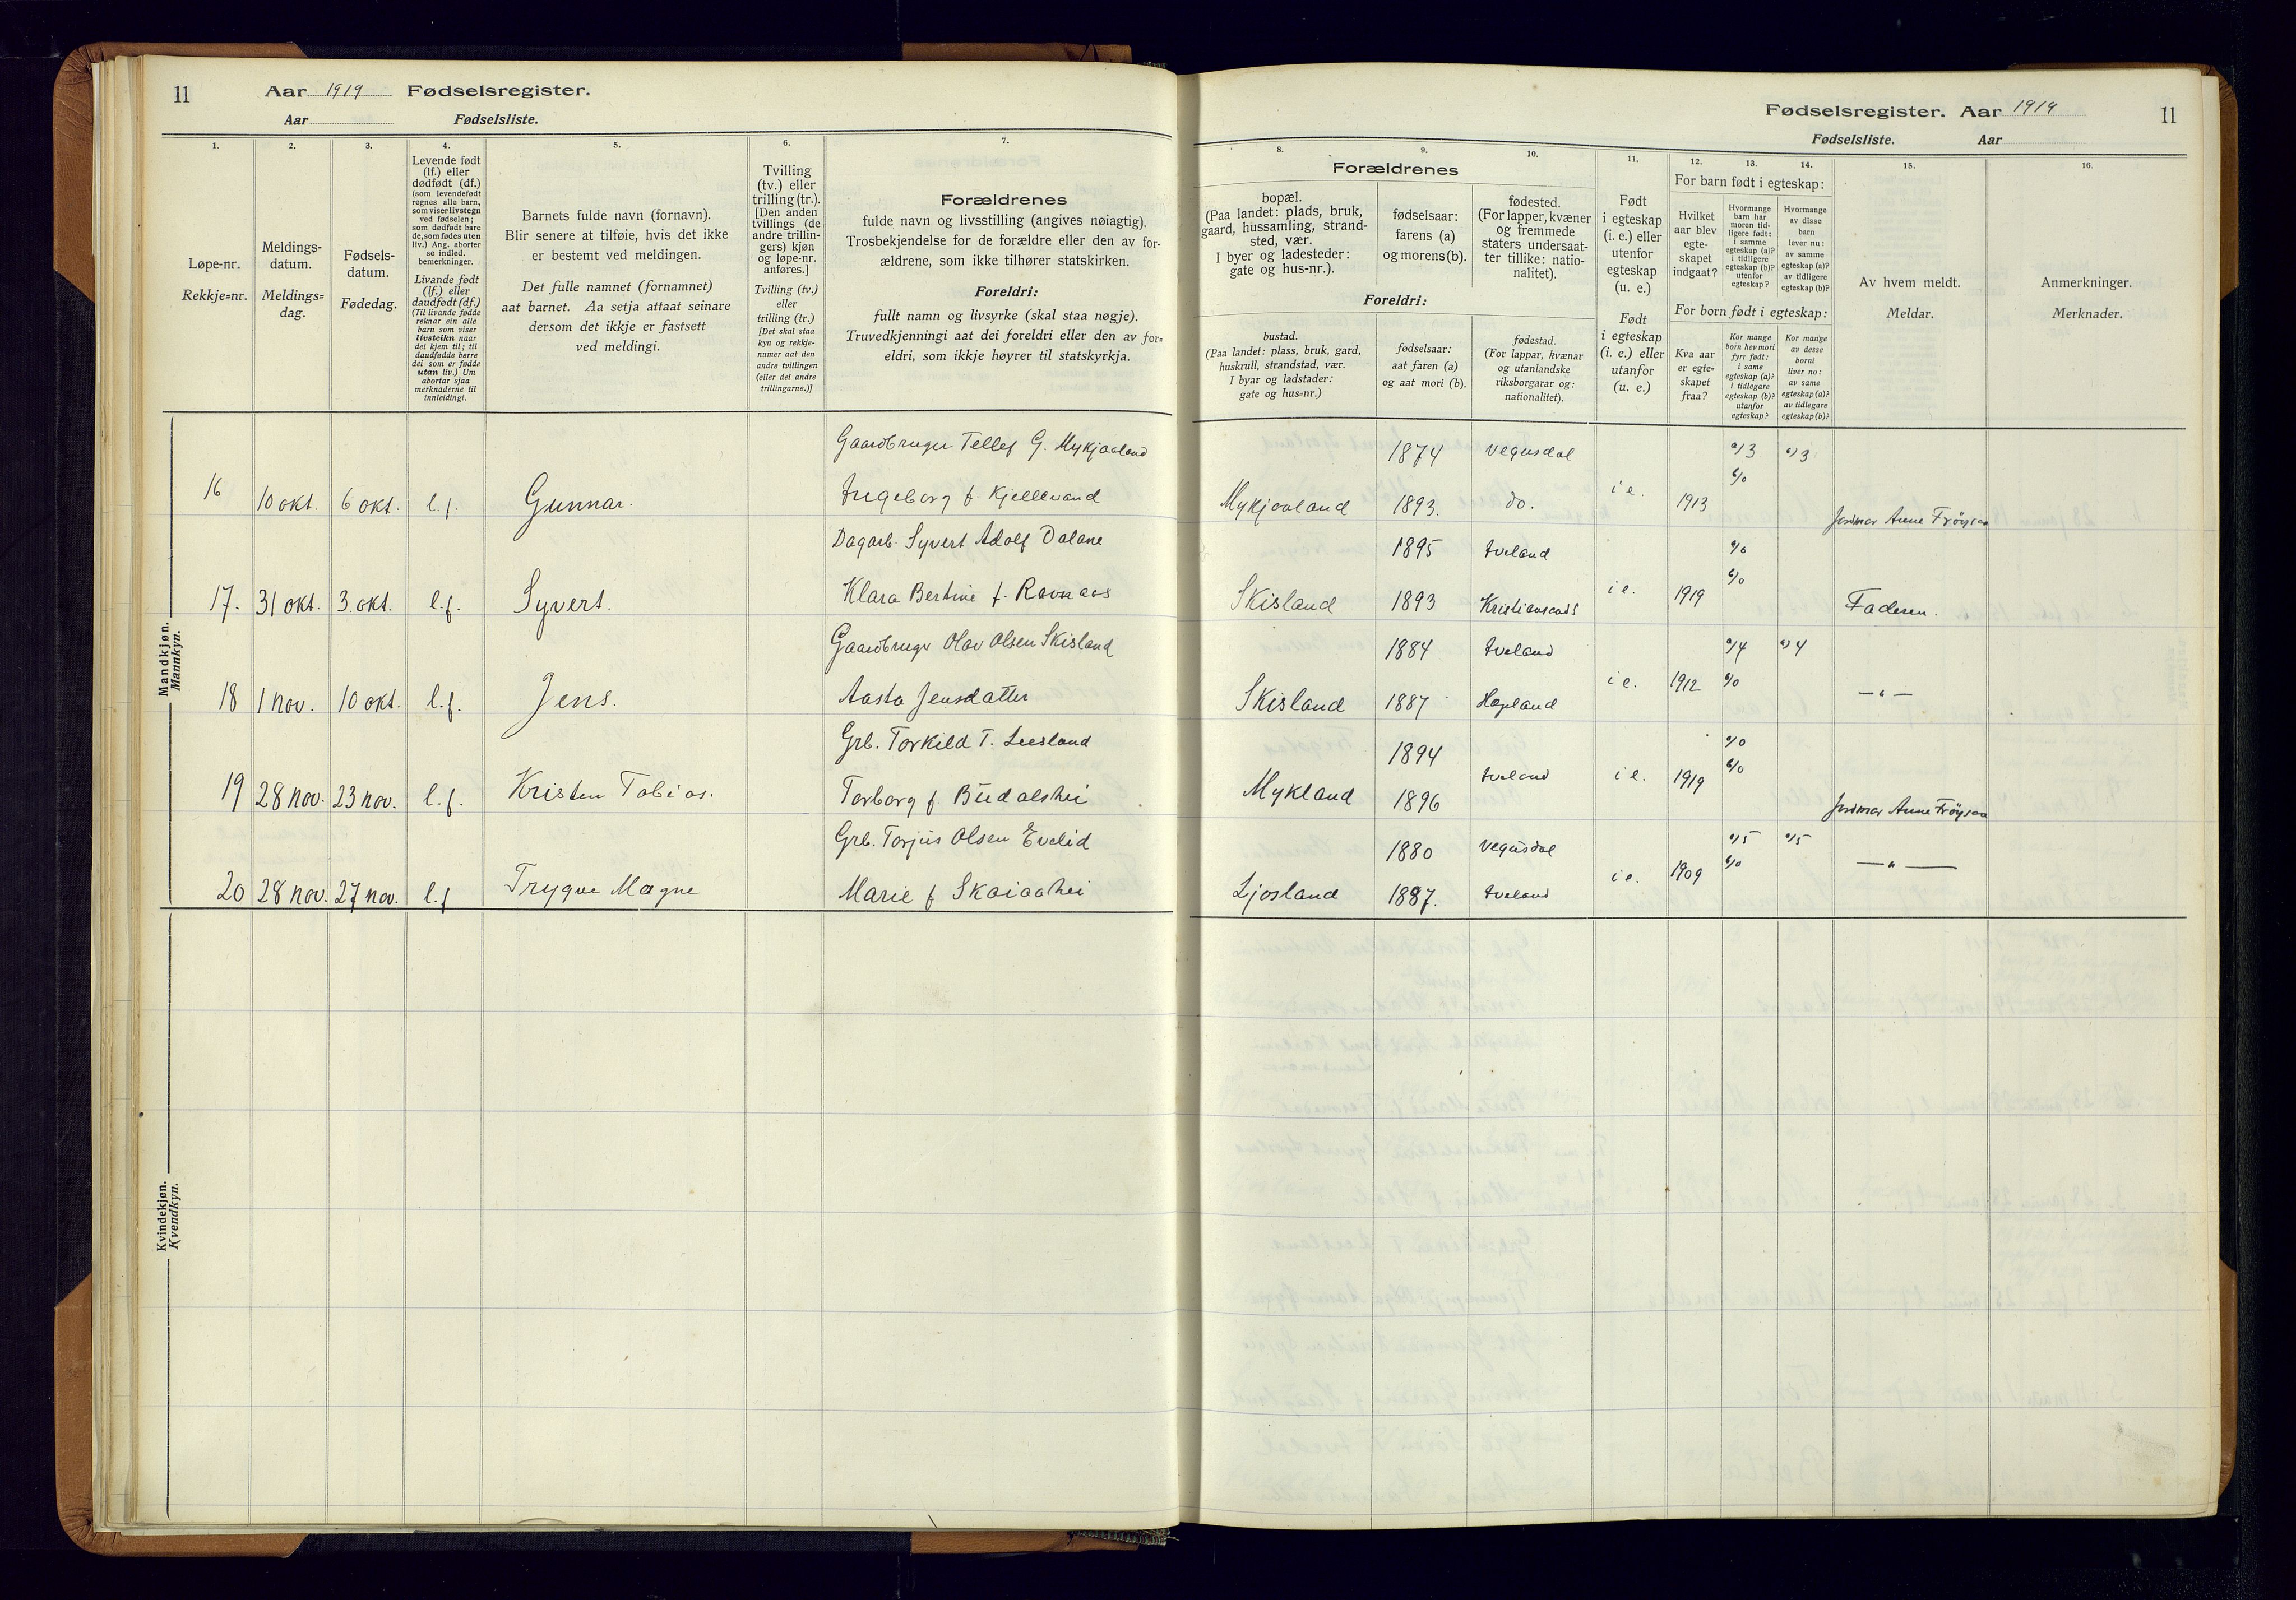 11
Aar 1919 Fødselsregister.
Aar Fødselsliste.
1.
2.
3.
4.
5.
6.
7.
Løpe-nr.
Rekkje=nr.
Meldings-
datum.
Meldings=
dag.
Fødsels-
datum.
Fødedag.
Levende født
(lf.) eller
dødfødt (df.)
(som levendefødt
regnes alle barn,
som viser livstegn
ved fødselen;
som dødfødt bare
de, som fødes uten
liv.) Ang. aborter
se indled.
bemerkninger.
Livande født
(lf.) eller
daudfødt (df.)
(Til livande fødde
reknar ein alle
barn som viser
livsteikn naar
dei kjem til; til
daudfødde berre
dei som er fødde
utan liv.) Um
abortar sjaa
merknaderne til
innleidingi.
Barnets fulde navn (fornavn).
Blir senere at tilføie, hvis det ikke
er bestemt ved meldingen.
Det fulle namnet (fornamnet)
aat barnet. Aa setja attaat seinare
dersom det ikkje er fastsett
ved meldingi.
Tvilling
(tv.) eller
trilling (tr.).
[Den anden
tvillings (de
andre trillin-
gers) kjøn
og løpe-nr.
anføres.]
Tvilling (tv.)
eller
trilling (tr.)
[Det skal staa
kyn og rekkje-
numer aat den
andre tvillingen
(eller dei andre
trillingarne.)]
Forældrenes
fulde navn og livsstilling (angives nøiagtig).
Trosbekjendelse for de forældre eller den av for-
ældrene, som ikke tilhører statskirken.
Foreldri:
fullt namn og livsyrke (skal staa nøgje).
Truvedkjenningi aat dei foreldri eller den av for=
eldri, som ikkje høyrer til statskyrkja.
Mandkjøn.
Mannkyn.
Gaardbruger Tellef G. Mykjaaland
16 10 okt. 6 okt. l.f. Gunnar. Ingeborg f. Kjellevand
Dagarb. Syvert Adolf Dalane
17. 31 okt. 3. okt. l.f. Syvert. Klara Bertine f. Ravnaas
Gaardbruger Olav Olsen Skisland
18 1 nov. 10 okt. l.f. Jens. Aasta Jensdatter
Grb. Torkild T. Liesland
19 28 nov. 23 nov. l.f. Kristen Tobias. Torborg f.
Grb. Torjus Olsen Evelid
20 28 nov. 27 nov. l.f Trygve Magne Marie f Skaiaahei
Kvindekjøn.
Kvendkyn.
Fødselsregister. Aar 1919 11
Fødselsliste. Aar
8.
9.
10.
11.
12.
13.
14.
15.
16.
Forældrenes
bopæl.
(Paa landet: plads, bruk,
gaard, hussamling, strand-
sted, vær.
I byer og ladesteder:
gate og hus-nr.).
fødselsaar:
farens (a)
og morens (b).
fødested.
(For lapper, kvæner
og fremmede
staters undersaat-
ter tillike: natio-
nalitet).
Foreldri:
bustad.
(Paa landet: plass, bruk, gard,
huskrull, strandstad, vær.
I byar og ladstader:
gate og hus=nr.)
fødselsaar:
aat faren (a)
og aat mori (b).
fødestad.
(For lappar, kvænar
og utanlandske
riksborgarar og:
nationalitet).
Født
i egteskap
(i. e.) eller
utenfor
egteskap
(u. e.)
Født
i egteskap
(i. e.) eller
utanfor
(u. e.)
For barn født i egteskap:
Hvilket
aar blev
egte-
skapet
indgaat?
Hvormange
barn har
moren tid-
ligere født:
i samme
egteskap (a)?
i tidligere
egteskap (b)?
utenfor
egteskap?
Hvormange
av disse
barn
lever nu:
av samme
egteskap (a)?
av tidligere
egteskap (b)?
For born født i egteskap:
Kva aar
er egte=
skapet
fraa?
Kor mange
born hev mori
fyrr født:
i same
egteskap (a)?
i tidlegare
egteskap (b)?
utanfor
egteskap?
Kor mange
av desse
borni
liver no:
av same
egteskap (a)?
av tidlegare
egteskap (b)?
Av hvem meldt.
Meldar.
Anmerkninger.
Merknader.
1874 Vegusdal a/3 a/3
Mykjaaland 1893. do. i e. 1913 b/0 Jordmor Anne Frøysaa
1895 Iveland a/0
Skisland 1893 Kristiansands i e. 1919 b/0 Faderen.
1884 Iveland a/4 a/4
Skisland 1887 Hægeland i e. 1912 b/0 —"—
1894 a/0
Mykland 1896 Iveland i e. 1919 b/0 Jordmor Anne Frøysaa
1880 Vegusdal a/5 a/5
Ljosland 1887. Iveland i e. 1909 b/0 —"—